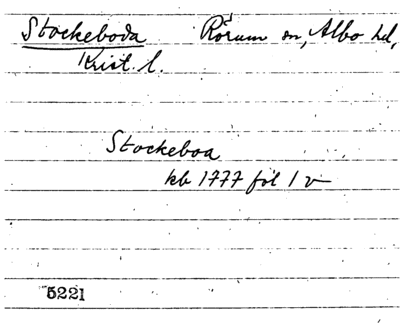 Stockeboda Rörum sn, Albo hd,
Krist. l.
Stockeboa
kb 1777 fol 1 v
5221